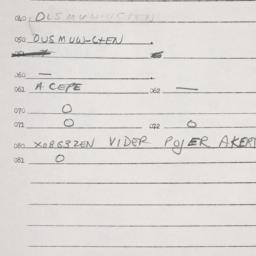 040. DUSMUW-USTEN
050. DUSMUW-CTEN
060. —
061. A. CEPE 062. —
070. O
071. O 072. O
080. XOBG3ZEN VIDER POJER AKERT
081. O